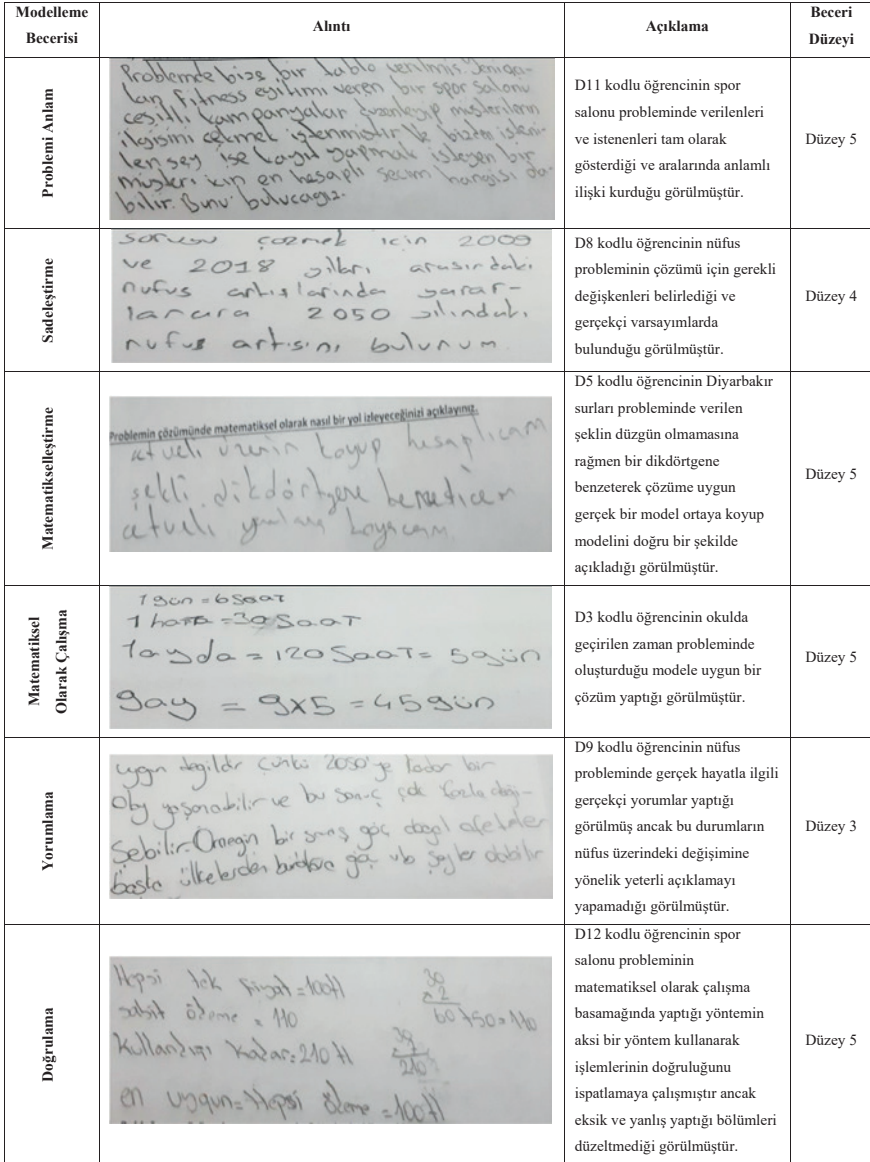 Modelleme
Becerisi
Alıntı
Açıklama
Beceri
Düzeyi
Problemi Anlam
Problemde bize bir tablo verilmiş. Yeni açı-
lan fitness eğitimi veren bir spor salonu
çeşitli kampanyalar düzenleyip müşterilerin
ilgisini çekmek istenmiştir. Ve bizden isteni-
len şey ise kayıt yapmak isteyen bir
müşteri için en hesaplı seçim hangisi ola-
bilir. Bunu bulucağız.
D11 kodlu öğrencinin spor
salonu probleminde verilenleri
ve istenenleri tam olarak
gösterdiği ve aralarında anlamlı
ilişki kurduğu görülmüştür.
Düzey 5
Sadeleştirme
sorusu çözmek için 2009
ve 2018 yılları arasındaki
nufus artışlarında yarar-
lanara 2050 yılındaki
nufus artışını bulurum
D8 kodlu öğrencinin nüfus
probleminin çözümü için gerekli
değişkenleri belirlediği ve
gerçekçi varsayımlarda
bulunduğu görülmüştür.
Düzey 4
Matematikselleştirme
Problemin çözümünde matematiksel olarak nasıl bir yol izleyeceğinizi açıklayınız.
koyup hesaplıcam
şekli dikdörtgene benzeticem
koyacam
D5 kodlu öğrencinin Diyarbakır
surları probleminde verilen
şeklin düzgün olmamasına
rağmen bir dikdörtgene
benzeterek çözüme uygun
gerçek bir model ortaya koyup
modelini doğru bir şekilde
açıkladığı görülmüştür.
Düzey 5
Matematiksel
Olarak Çalışma
1 gün = 6 Saat
1 hafta = 30 Saat
1 ayda = 120 Saat = 5 gün
9 ay = 9x5 = 45 gün
D3 kodlu öğrencinin okulda
geçirilen zaman probleminde
oluşturduğu modele uygun bir
çözüm yaptığı görülmüştür.
Düzey 5
Yorumlama
uygun değildir çünkü 2050'ye kadar bir
olay yaşanabilir ve bu sonuç çok fazla deği-
şebilir. Örneğin bir savaş göç doğal afetler
başka ülkelerden buralara göç vb şeyler olabilir
D9 kodlu öğrencinin nüfus
probleminde gerçek hayatla ilgili
gerçekçi yorumlar yaptığı
görülmüş ancak bu durumların
nüfus üzerindeki değişimine
yönelik yeterli açıklamayı
yapamadığı görülmüştür.
Düzey 3
Doğrulama
Hepsi tek fiyat = 100 tl
sabit ödeme = 110
Kullandığı kadar = 210 tl
en uygun = Hepsi ödeme = 100 tl
30
x 2
60 +50 = 110
30
210
D12 kodlu öğrencinin spor
salonu probleminin
matematiksel olarak çalışma
basamağında yaptığı yöntemin
aksi bir yöntem kullanarak
işlemlerinin doğruluğunu
ispatlamaya çalışmıştır ancak
eksik ve yanlış yaptığı bölümleri
düzeltmediği görülmüştür.
Düzey 5